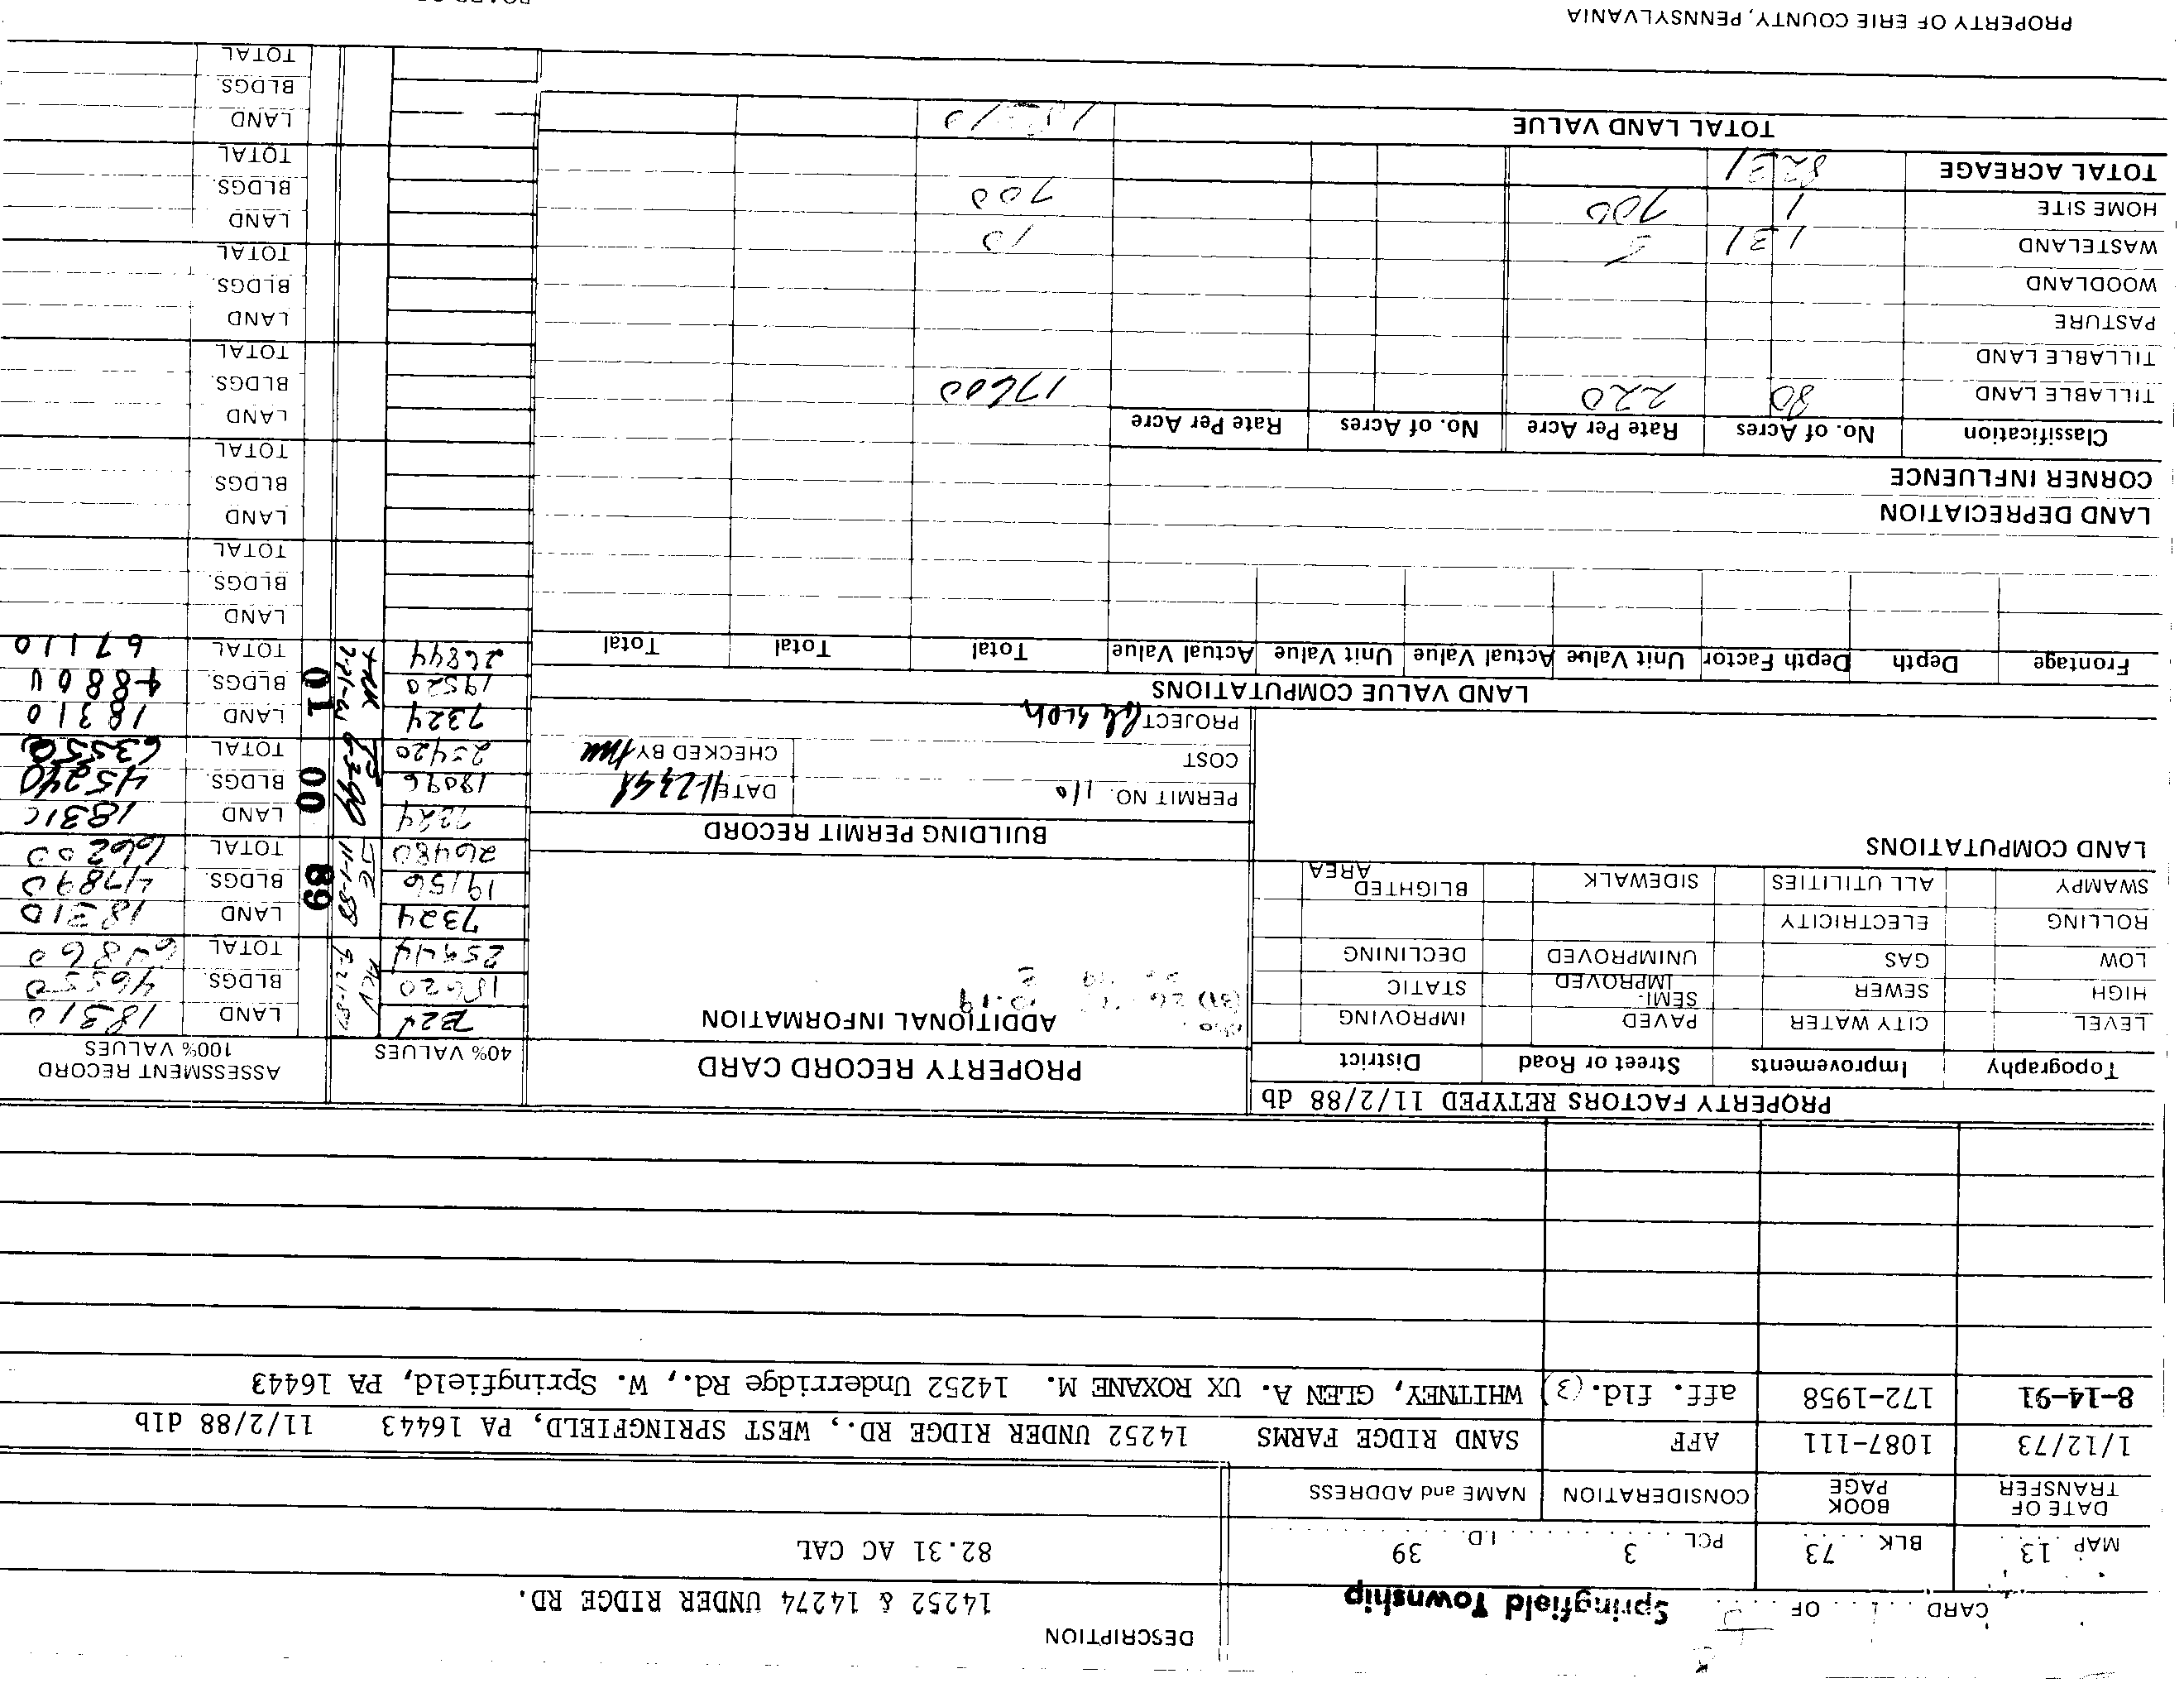 DESCRIPTION
CARD 1 OF
Springfield Township
14252 & 14274 UNDER RIDGE RD.
MAP 13 BLK 73 PCL 3 I.D. 39
82.31 AC CAL
DATE OF TRANSFER
BOOK PAGE
CONSIDERATION
NAME and ADDRESS
1/12/73 1087-111 AFF SAND RIDGE FARMS 14252 UNDER RIDGE RD., WEST SPRINGFIELD, PA 16443 11/2/88 dlb
8-14-91 172-1958 aff. fid.(3) WHITNEY, GLEN A. UX ROXANE M. 14252 Underridge Rd., W. Springfield, PA 16443
PROPERTY FACTORS RETYPED 11/2/88 db
Topography Improvements Street or Road District
LEVEL CITY WATER PAVED IMPROVING
HIGH SEWER SEMI-IMPROVED STATIC
LOW GAS UNIMPROVED DECLINING
ROLLING ELECTRICITY
SWAMPY ALL UTILITIES SIDEWALK BLIGHTED AREA
LAND COMPUTATIONS
PROPERTY RECORD CARD
ADDITIONAL INFORMATION
BUILDING PERMIT RECORD
PERMIT NO. 110 DATE
COST CHECKED BY
PROJECT
40% VALUES
ASSESSMENT RECORD
100% VALUES
7324 LAND 18310
18620 9-21-87 BLDGS. 46550
25944 TOTAL 64860
7324 89 LAND 18310
19156 11-1-88 BLDGS. 47890
26480 TOTAL 66200
7324 00 LAND 18310
18096 BLDGS. 45240
25420 TOTAL 63550
7324 01 LAND 18310
19520 BLDGS. 48800
26844 TOTAL 67110
LAND
BLDGS.
TOTAL
LAND
BLDGS.
TOTAL
LAND
BLDGS.
TOTAL
LAND
BLDGS.
TOTAL
LAND
BLDGS.
TOTAL
LAND
BLDGS.
TOTAL
LAND VALUE COMPUTATIONS
Frontage Depth Depth Factor Unit Value Actual Value Unit Value Actual Value Total Total Total
LAND DEPRECIATION
CORNER INFLUENCE
Classification No. of Acres Rate Per Acre No. of Acres Rate Per Acre
TILLABLE LAND 80 220 17600
TILLABLE LAND
PASTURE
WOODLAND
WASTELAND 1 31 5 10
HOME SITE 1 700 700
TOTAL ACREAGE 82 31
TOTAL LAND VALUE 18310
PROPERTY OF ERIE COUNTY, PENNSYLVANIA